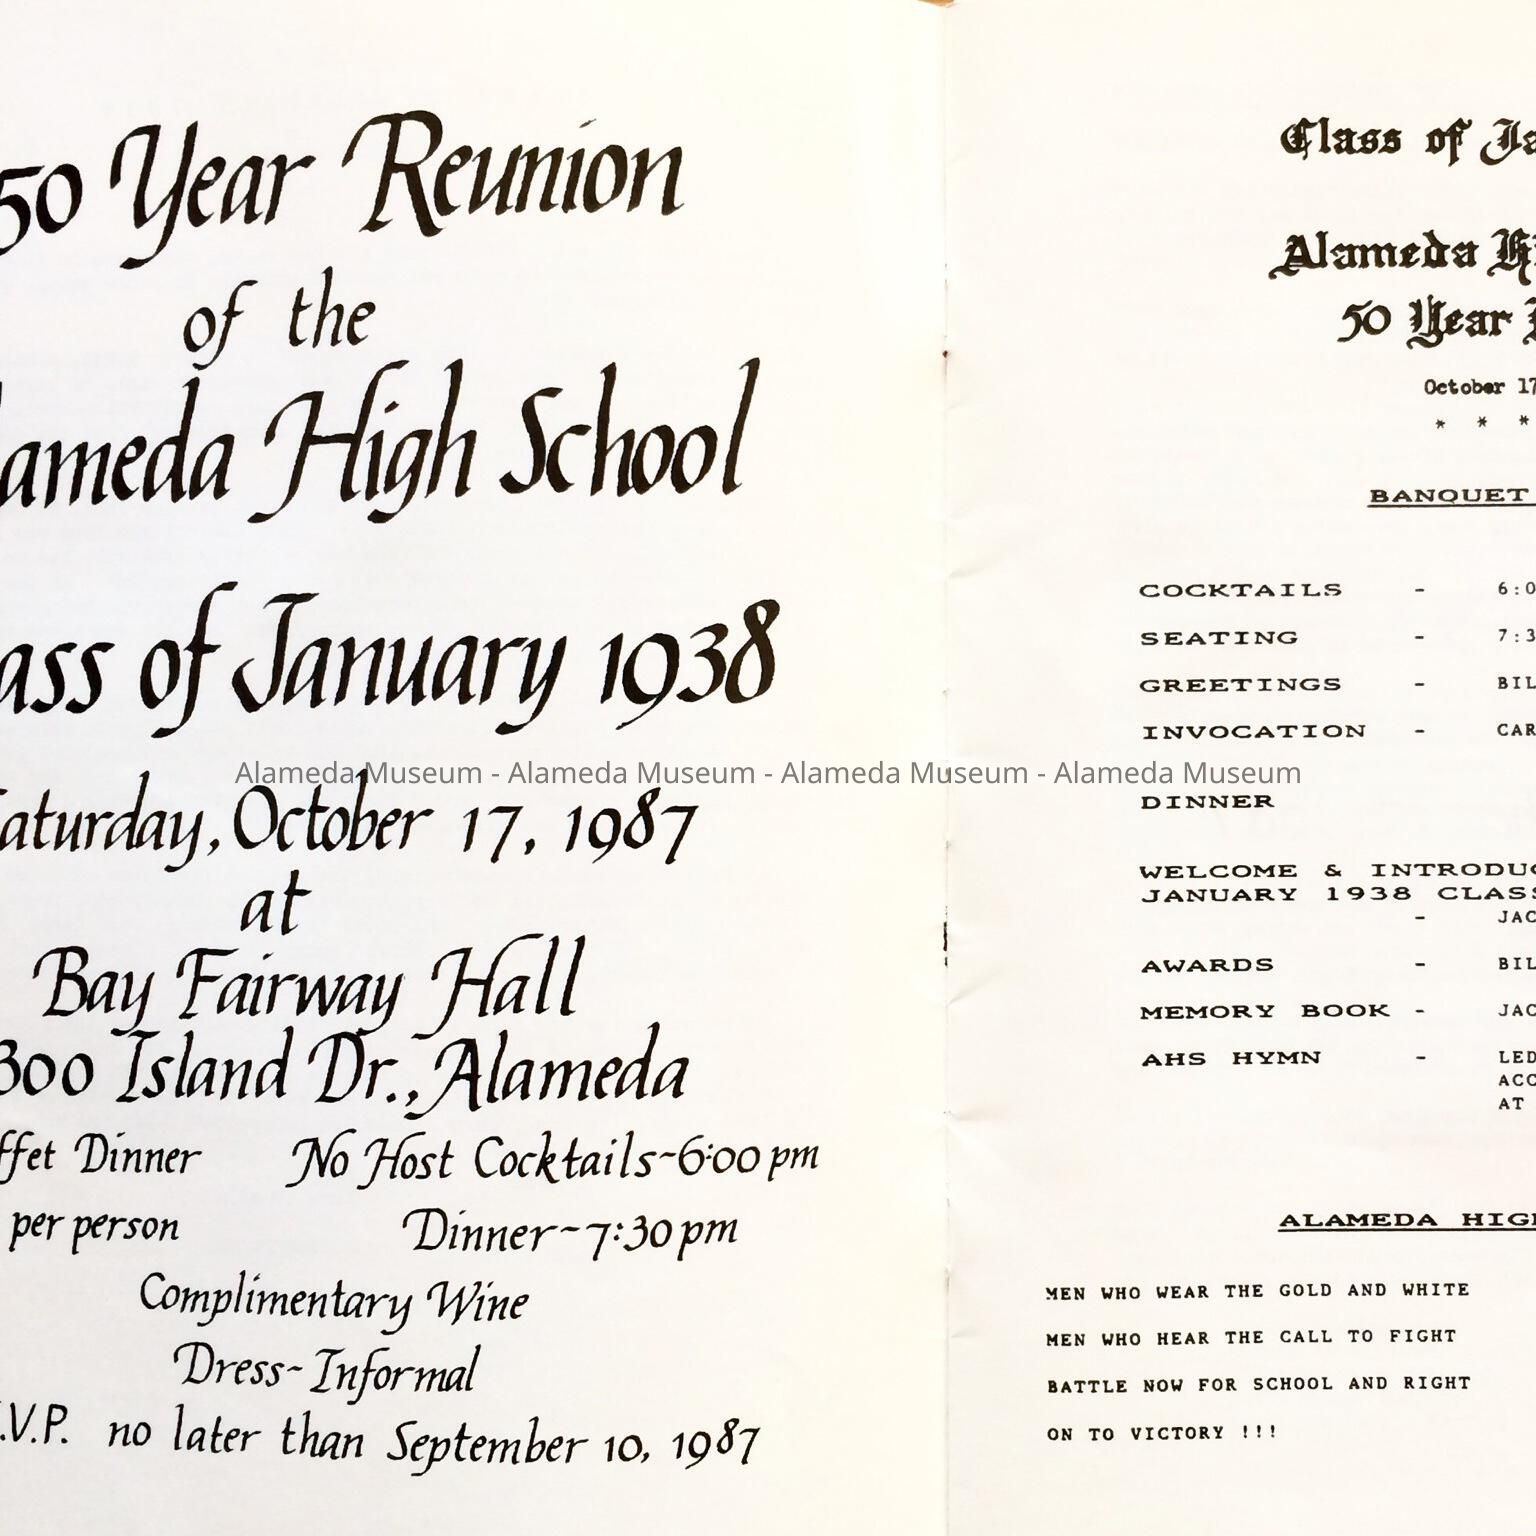 50 Year Reunion
of the
ameda High School
ass of January 1938
aturday, October 17, 1987
at
Bay Fairway Hall
300 Island Dr., Alameda
ffet Dinner No Host Cocktails~6:00 pm
per person Dinner~7:30 pm
Complimentary Wine
Dress~Informal
.V.P. no later than September 10, 1987
Alameda Museum - Alameda Museum - Alameda Museum - Alameda Museum
Class of Ja
Alameda Hi
50 Year
October 17
* * *
BANQUET
COCKTAILS - 6:0
SEATING - 7:3
GREETINGS - BIL
INVOCATION - CAR
DINNER
WELCOME & INTRODUC
JANUARY 1938 CLASS
- JAC
AWARDS - BIL
MEMORY BOOK - JAC
AHS HYMN - LED
ACC
AT
ALAMEDA HIGH
MEN WHO WEAR THE GOLD AND WHITE
MEN WHO HEAR THE CALL TO FIGHT
BATTLE NOW FOR SCHOOL AND RIGHT
ON TO VICTORY !!!